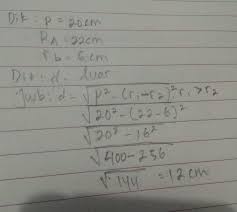 Dik: P = 20cm
RA = 22cm
rb = 6cm
Dit: d. luar
Jwb: d = √P² - (r₁-r₂)², r₁ > r₂
√20² - (22-6)²
√20² - 16²
√400 - 256
√144 = 12 cm